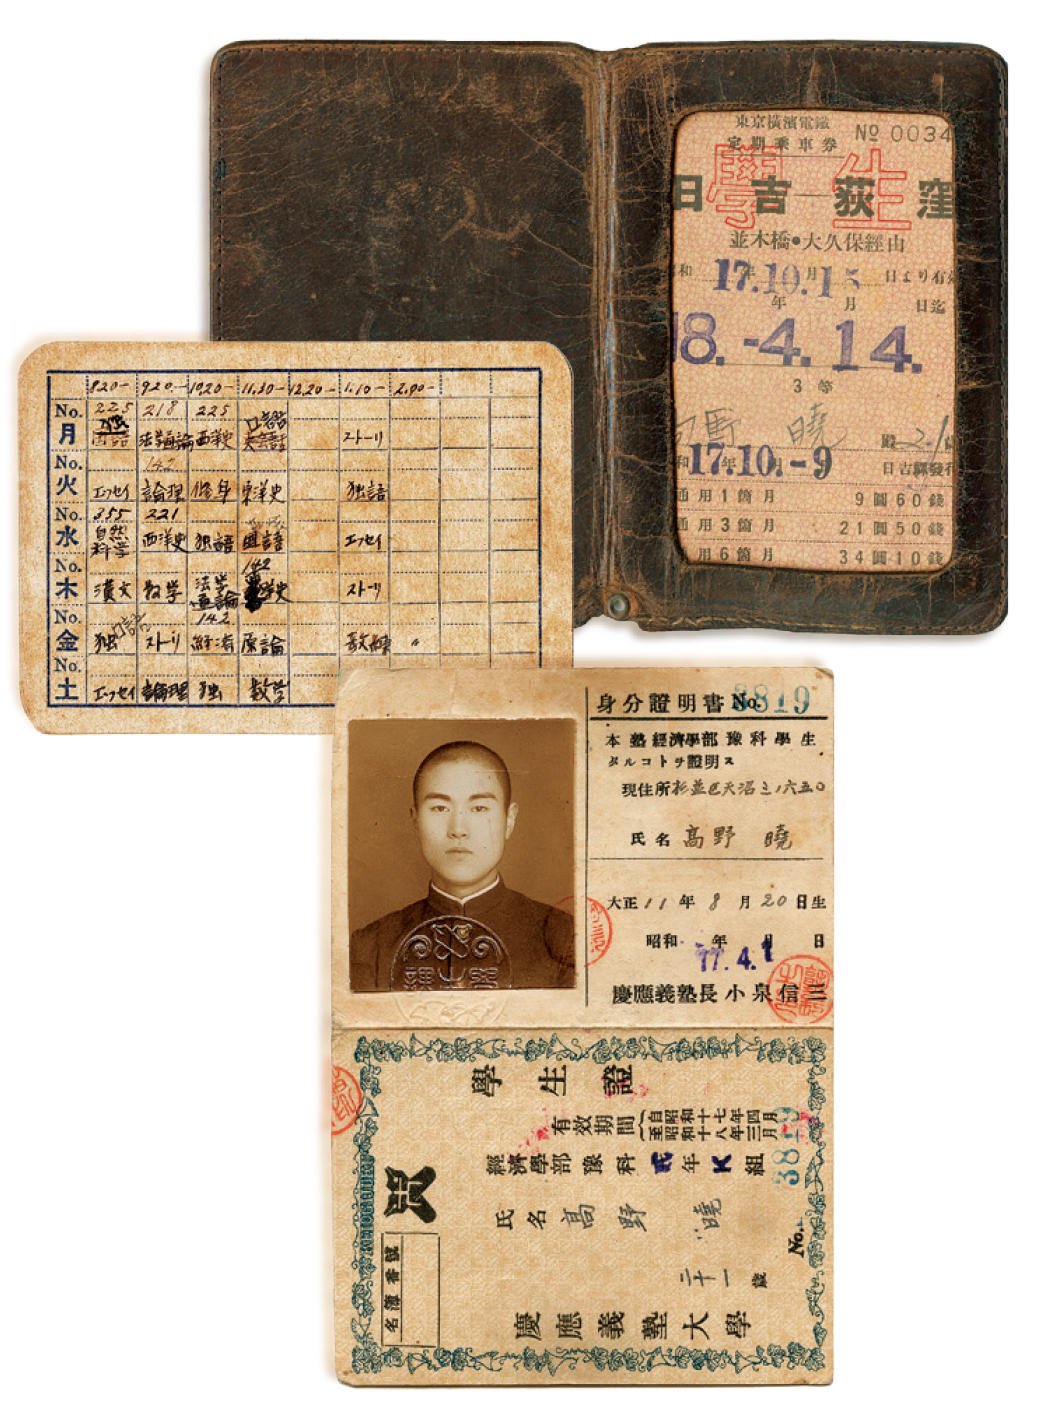 東京横濱電鐵
定期乗車券
№ 0034
學生
日吉 荻窪
並木橋・大久保經由
和 17年10月15日より有効
8.-4.14.
年 月 日迄
3等
野 曉 殿 21歳
和17年10月-9 日吉驛發行
通用1箇月 9圓60錢
通用3箇月 21圓50錢
用6箇月 34圓10錢
8.20- 9.20.- 10.20- 11.30- 12.20- 1.10- 2.00-
No. 225 218 225
月 法学通論 西洋史 ストーリ
No. 142
火 エッセイ 論理 修身 東洋史 独語
No. 355 221
水 自然科学 西洋史 独語 國語 エッセイ
No. 142
木 漢文 数学 法学通論 洋史 ストーリ
No. 142
金 独 ストーリ 経済 原論 教練 〃
No.
土 エッセイ 論理 独 数学
身分證明書 No. 3819
本塾經濟學部豫科學生
タルコトヲ證明ス
現住所 杉並区天沼三ノ六五〇
氏名 高野 曉
大正11年8月20日生
昭和 年 月 日
17.4.1
慶應義塾長小泉信三
學生證
有效期間 自昭和十七年四月
至昭和十八年三月
經濟學部豫科 弐年 K組
氏名 高野 曉
二十一歳
慶應義塾大學
名簿番號
No. 3819